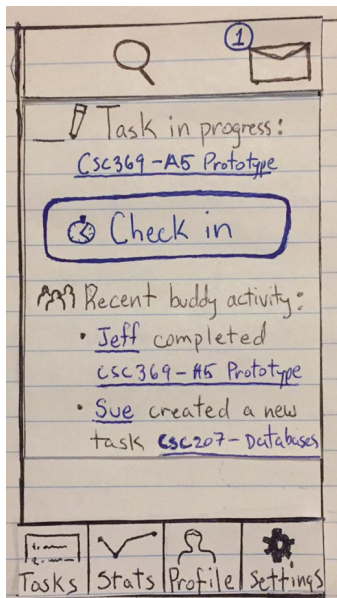 1
Task in progress:
Csc369-A5 Prototype
Check in
Recent buddy activity:
• Jeff completed
csc369-A5 Prototype
• Sue created a new
task CSC207-Databases
Tasks
Stats
Profile
Settings